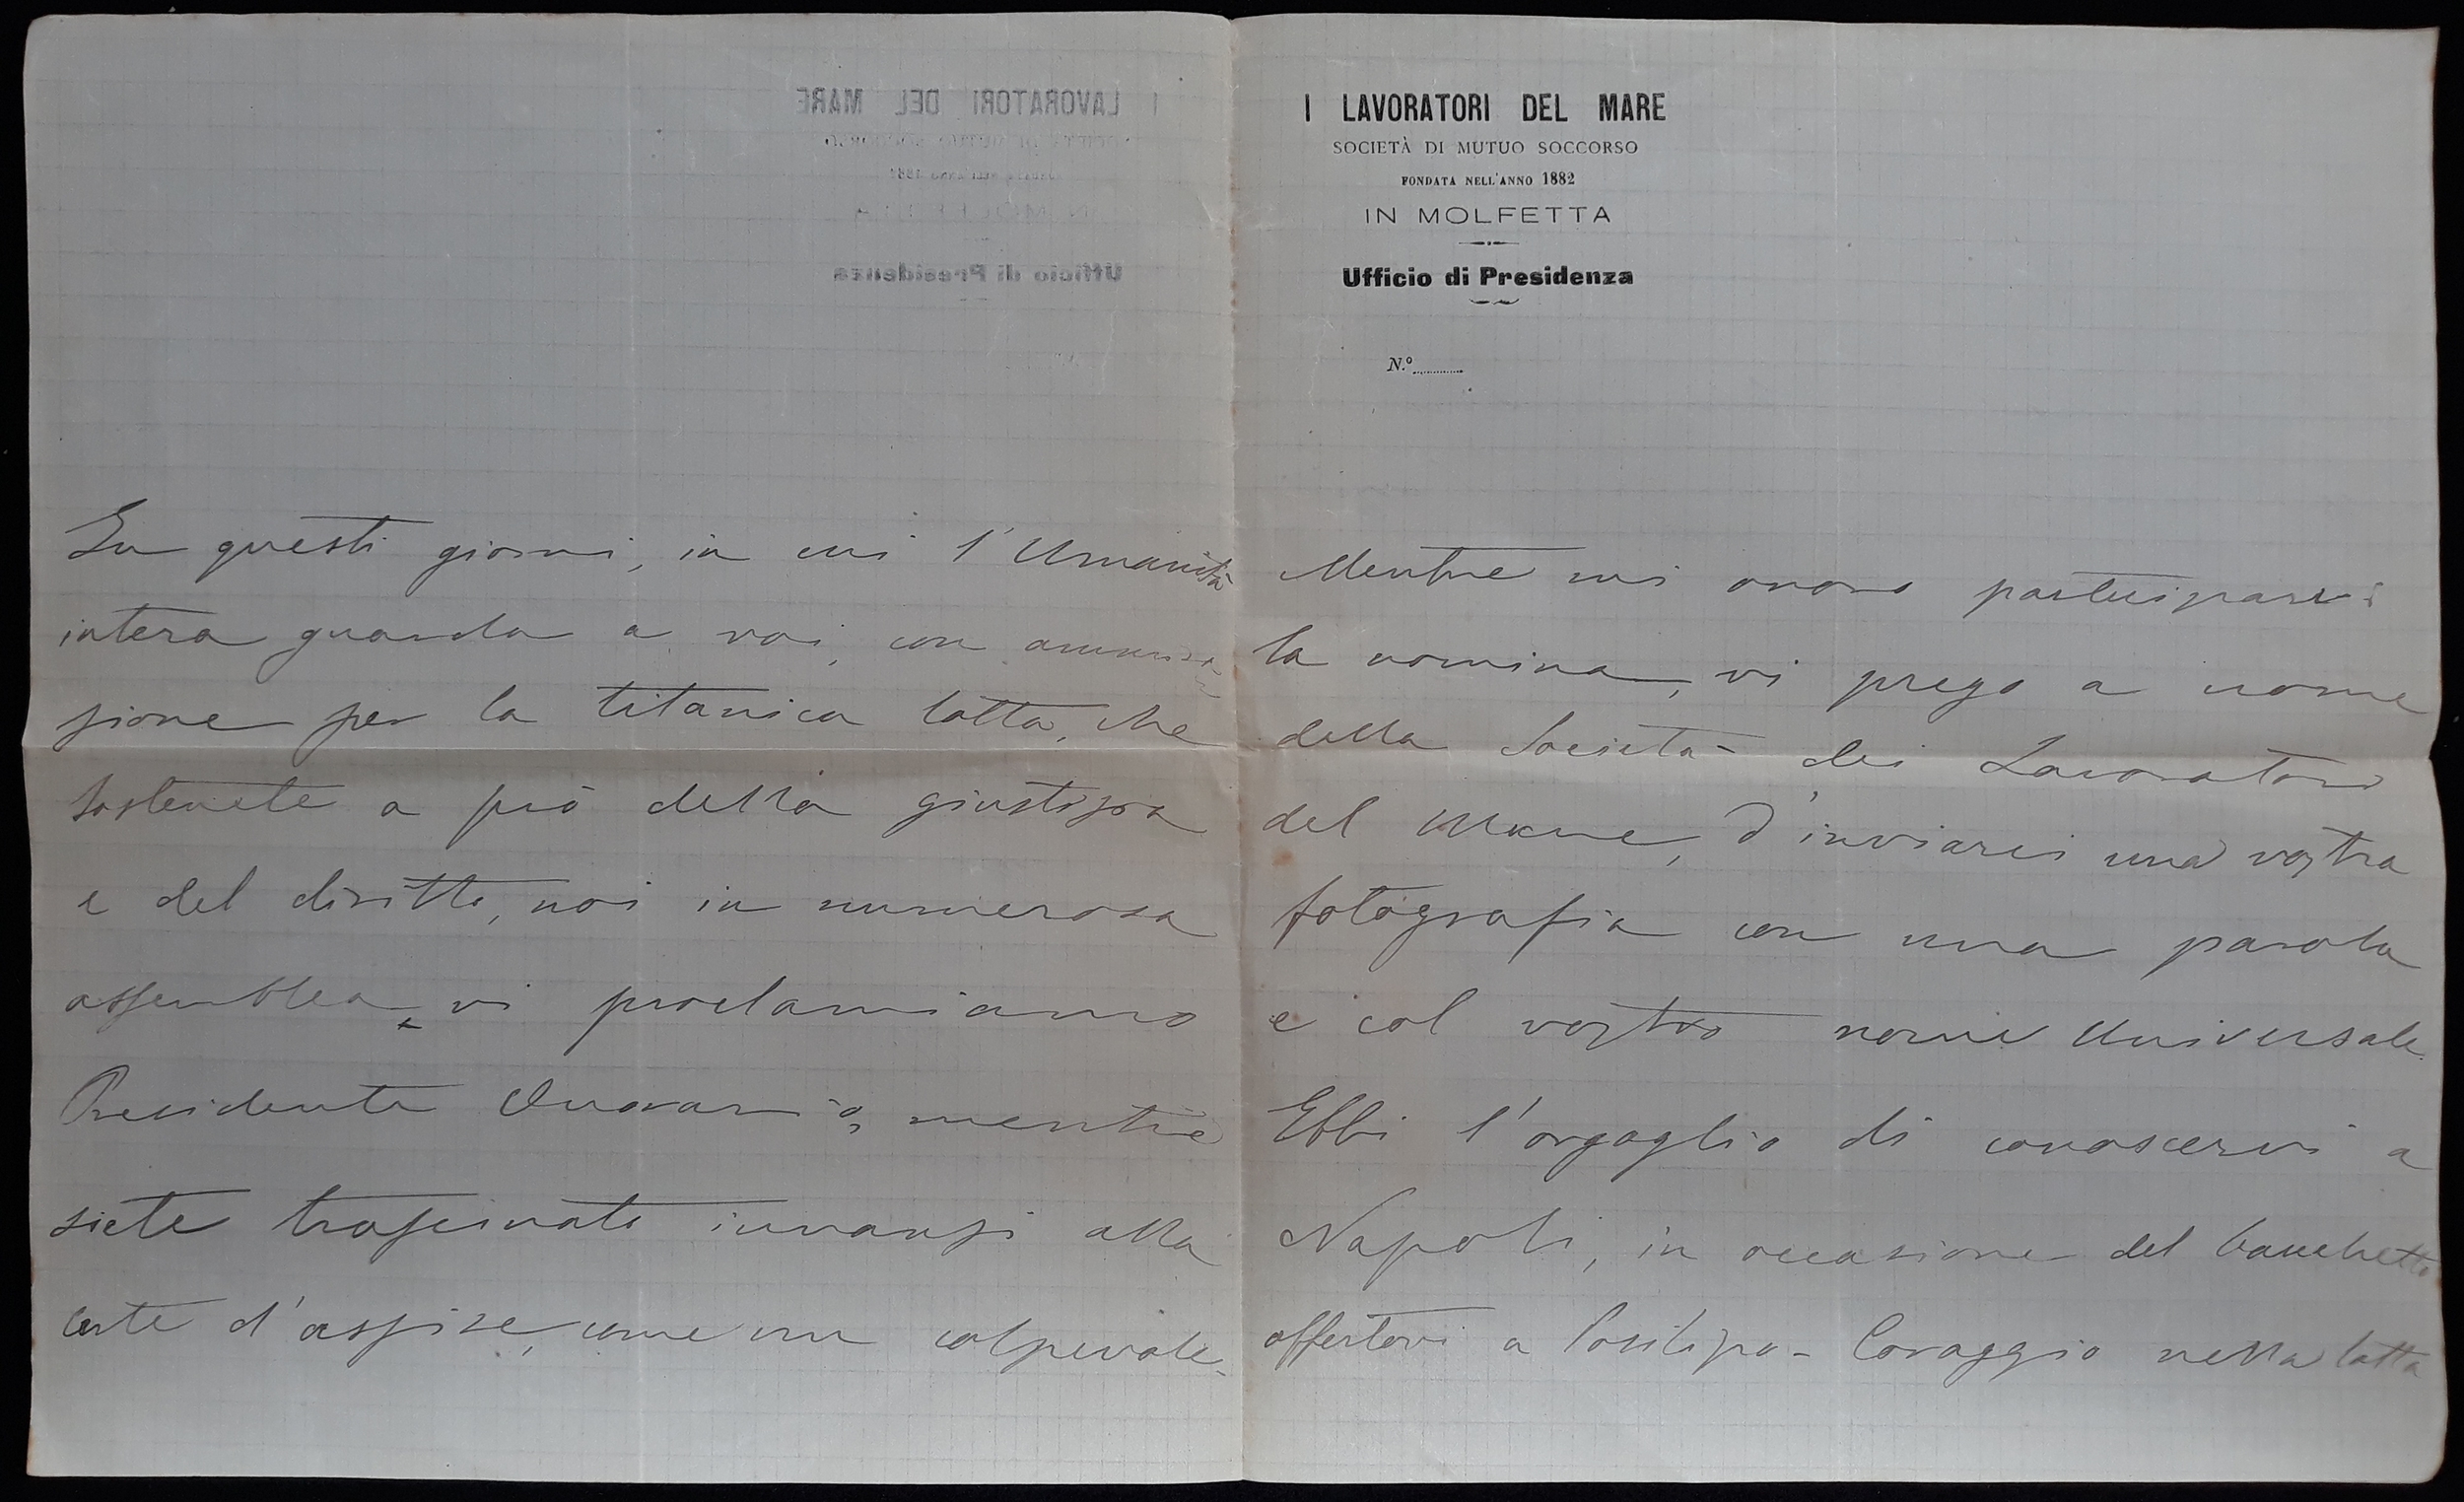 In questi giorni, in cui l'Umanità
intera guarda a voi, con ammira
zione per la titanica lotta, che
sostenete a prò della giustizia
e del diritto, noi in numerosa
assemblea, vi proclamiamo
Presidente Onorario, mentre
siete trascinato innanzi alla
Corte d'assise, come un colpevole.
I LAVORATORI DEL MARE
SOCIETÀ DI MUTUO SOCCORSO
FONDATA NELL'ANNO 1882
IN MOLFETTA
Ufficio di Presidenza
N.º
Mentre mi onoro parteciparvi
la nomina, vi prego a nome
della Società dei Lavoratori
del Mare, d'inviarci una vostra
fotografia con una parola
e col vostro nome Universale.
Ebbi l'orgoglio di conoscervi a
Napoli, in occasione del banchetto
offertovi a Posilipo - Coraggio nella lotta